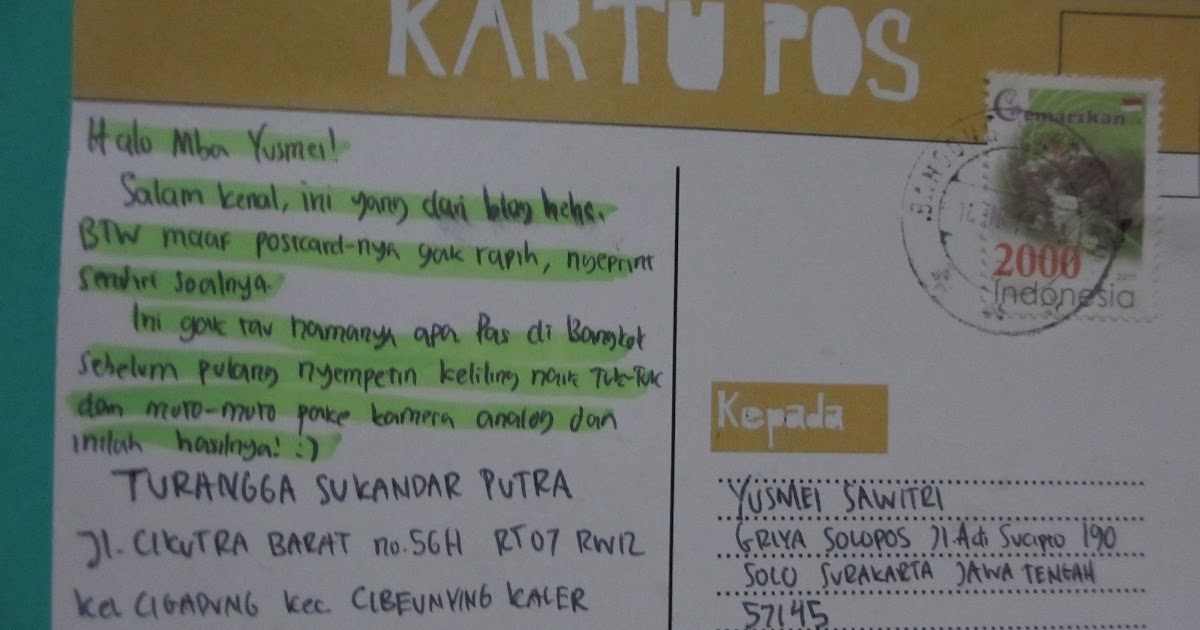 KARTU POS
Halo Mba Yusmei!
Salam kenal, ini yang dari blog hehe.
BTW maaf postcard-nya gak rapih, ngeprint
sendiri soalnya.
Ini gak tau namanya apa Pas di Bangkok
sebelum pulang nyempetin keliling naik Tuk-Tuk
dan moto-moto pake kamera analog dan
inilah hasilnya! :)
TURANGGA SUKANDAR PUTRA
Jl. CIKUTRA BARAT no.56H RT07 RW12
Kel CIGADUNG Kec. CIBEUNYING KALER
Gemarikan
2000
2011
Indonesia
Kepada
YUSMEI SAWITRI
GRIYA SOLOPOS Jl.Adi Sucipto 190
SOLO SURAKARTA JAWA TENGAH
57145